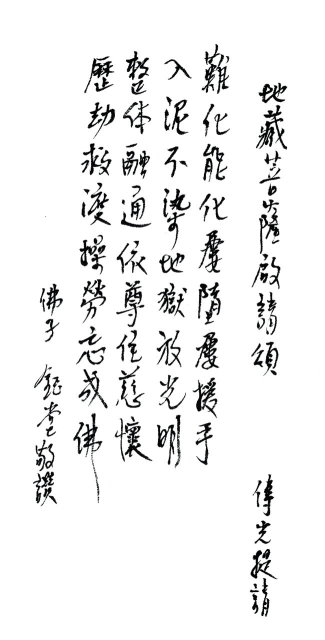 地藏菩薩啟請頌
偉光提請
難化能化屢墮屢援手
入泥不染地獄放光明
整体融通依尊住慈懷
歷劫救渡操勞忘成佛
佛子 鈺堂敬讚